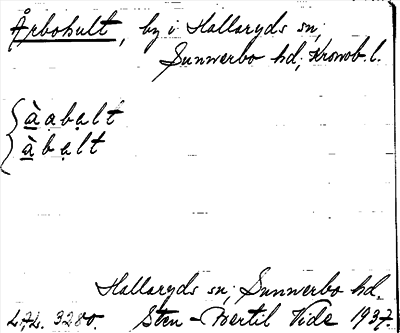 Årbohult, by i Hallaryds sn,
Sunnerbo hd, Kronob. l.
àabalt
àbalt
Hallaryds sn, Sunnerbo hd.
Sten-Bertil Vide 1937.
3280.